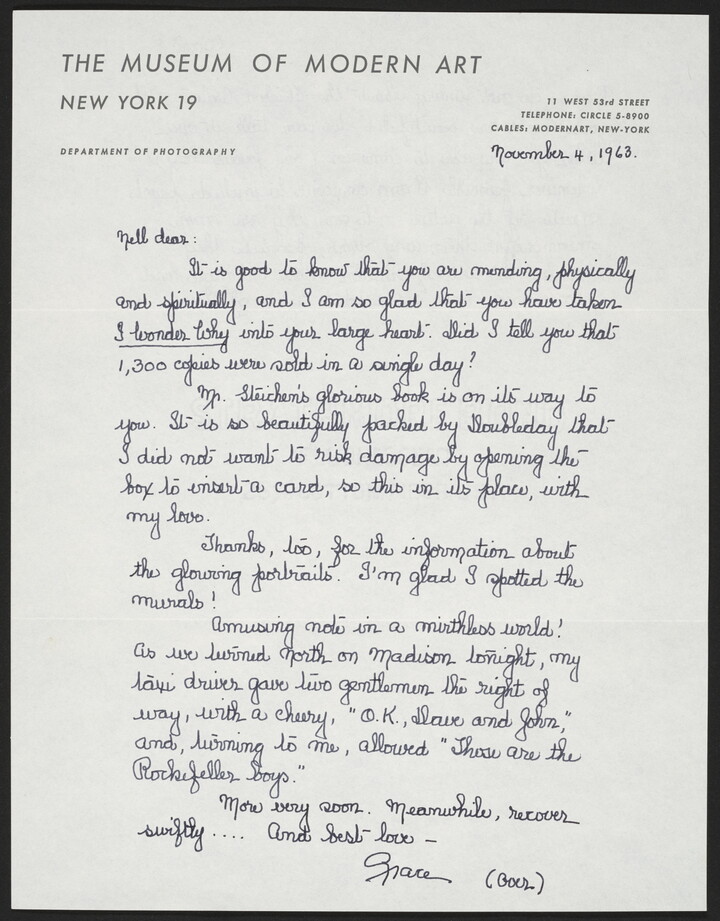 THE MUSEUM OF MODERN ART
NEW YORK 19
11 WEST 53rd STREET
TELEPHONE: CIRCLE 5-8900
CABLES: MODERNART, NEW-YORK
DEPARTMENT OF PHOTOGRAPHY
November 4, 1963.
Nell dear:
It is good to know that you are mending, physically
and spiritually, and I am so glad that you have taken
I Wonder Why into your large heart. Did I tell you that
1,300 copies were sold in a single day?
Mr. Steichen's glorious book is on its way to
you. It is so beautifully packed by Doubleday that
I did not want to risk damage by opening the
box to insert a card, so this in its place, with
my love.
Thanks, too, for the information about
the glowing portraits. I'm glad I spotted the
murals!
Amusing note in a mirthless world!
As we turned North on Madison tonight, my
taxi driver gave two gentlemen the right of
way, with a cheery, "O.K., Dave and John,"
and, turning to me, allowed "Those are the
Rockefeller boys."
More very soon. Meanwhile, recover
swiftly.... And best love —
Grace (Boes)